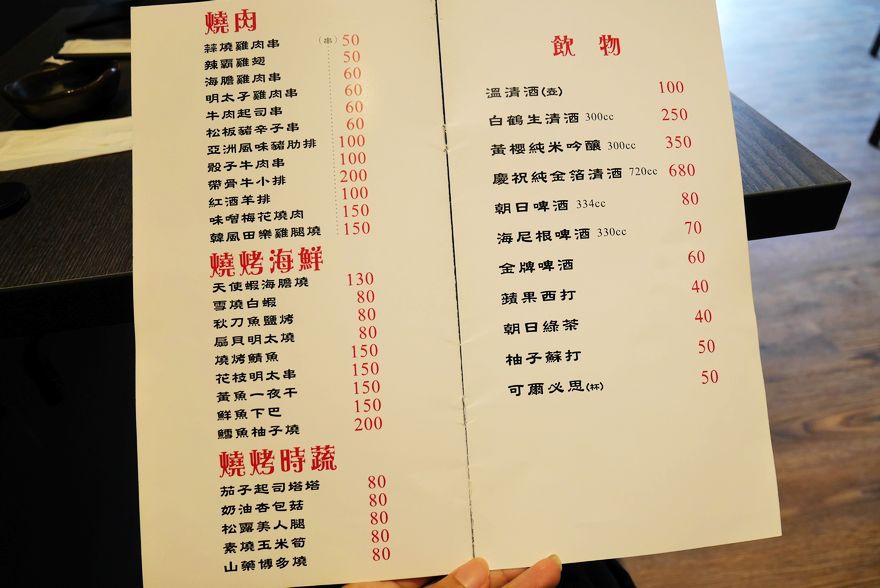 燒肉
蒜燒雞肉串 (串) 50
辣霸雞翅 50
海膽雞肉串 60
明太子雞肉串 60
牛肉起司串 60
松板豬辛子串 60
亞洲風味豬肋排 100
骰子牛肉串 100
帶骨牛小排 200
紅酒羊排 100
味噌梅花燒肉 150
韓風田樂雞腿燒 150
燒烤海鮮
天使蝦海膽燒 130
雪燒白蝦 80
秋刀魚鹽烤 80
扇貝明太燒 80
燒烤鯖魚 150
花枝明太串 150
黃魚一夜干 150
鮮魚下巴 150
鱈魚柚子燒 200
燒烤時蔬
茄子起司塔塔 80
奶油杏包菇 80
松露美人腿 80
素燒玉米筍 80
山藥博多燒 80
飲物
溫清酒(壺) 100
白鶴生清酒 300cc 250
黃櫻純米吟釀 300cc 350
慶祝純金箔清酒 720cc 680
朝日啤酒 334cc 80
海尼根啤酒 330cc 70
金牌啤酒 60
蘋果西打 40
朝日綠茶 40
柚子蘇打 50
可爾必思(杯) 50